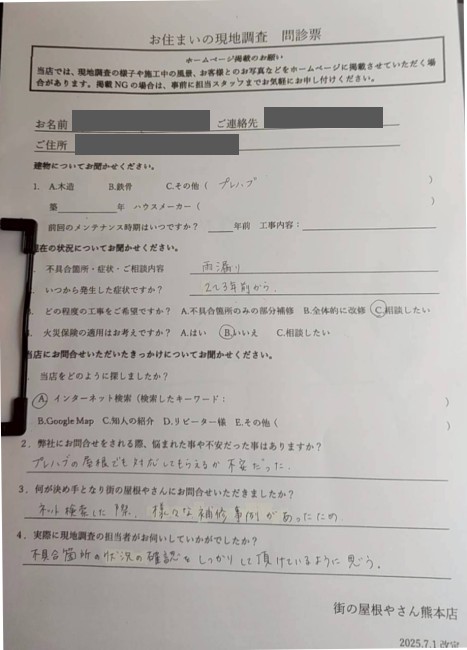 お住まいの現地調査 問診票
ホームページ掲載のお願い
当店では、現地調査の様子や施工中の風景、お客様とのお写真などをホームページに掲載させていただく場
合があります。掲載NGの場合は、事前に担当スタッフまでお気軽にお申し付けください。
お名前 ご連絡先
ご住所
建物についてお聞かせください。
1. A.木造 B.鉄骨 C.その他（ プレハブ ）
築 年 ハウスメーカー（ ）
前回のメンテナンス時期はいつですか？ 年前 工事内容：
現在の状況についてお聞かせください。
不具合箇所・症状・ご相談内容 雨漏り
いつから発生した症状ですか？ 2～3年前から.
どの程度の工事をご希望ですか？ A.不具合箇所のみの部分補修 B.全体的に改修 C.相談したい
火災保険の適用はお考えですか？ A.はい B.いいえ C.相談したい
当店にお問合せいただいたきっかけについてお聞かせください。
当店をどのように探しましたか？
A インターネット検索（検索したキーワード： ）
B.Google Map C.知人の紹介 D.リピーター様 E.その他（ ）
2．弊社にお問合せをされる際、悩まれた事や不安だった事はありますか？
プレハブの屋根でも対応してもらえるか不安だった.
3．何が決め手となり街の屋根やさんにお問合せいただきましたか？
ネット検索した際、様々な補修事例があったため.
4．実際に現地調査の担当者がお伺いしていかがでしたか？
不具合箇所の状況の確認をしっかりして頂けているように思う.
街の屋根やさん熊本店
2025.7.1 改定